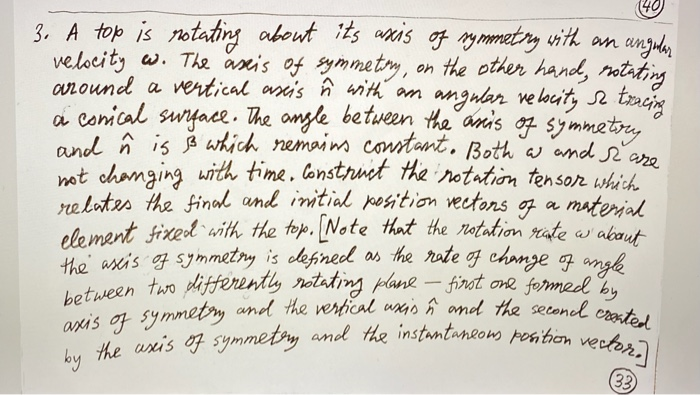 (40)
3. A top is rotating about its axis of symmetry with an angular
velocity ω. The axis of symmetry, on the other hand, rotating
around a vertical axis n̂ with an angular velocity Ω tracing
a conical surface. The angle between the axis of symmetry
and n̂ is β which remains constant. Both ω and Ω are
not changing with time. Construct the rotation tensor which
relates the final and initial position vectors of a material
element fixed with the top. [Note that the rotation rate ω about
the axis of symmetry is defined as the rate of change of angle
between two differently rotating plane – first one formed by
axis of symmetry and the vertical axis n̂ and the second created
by the axis of symmetry and the instantaneous position vector.]
(33)